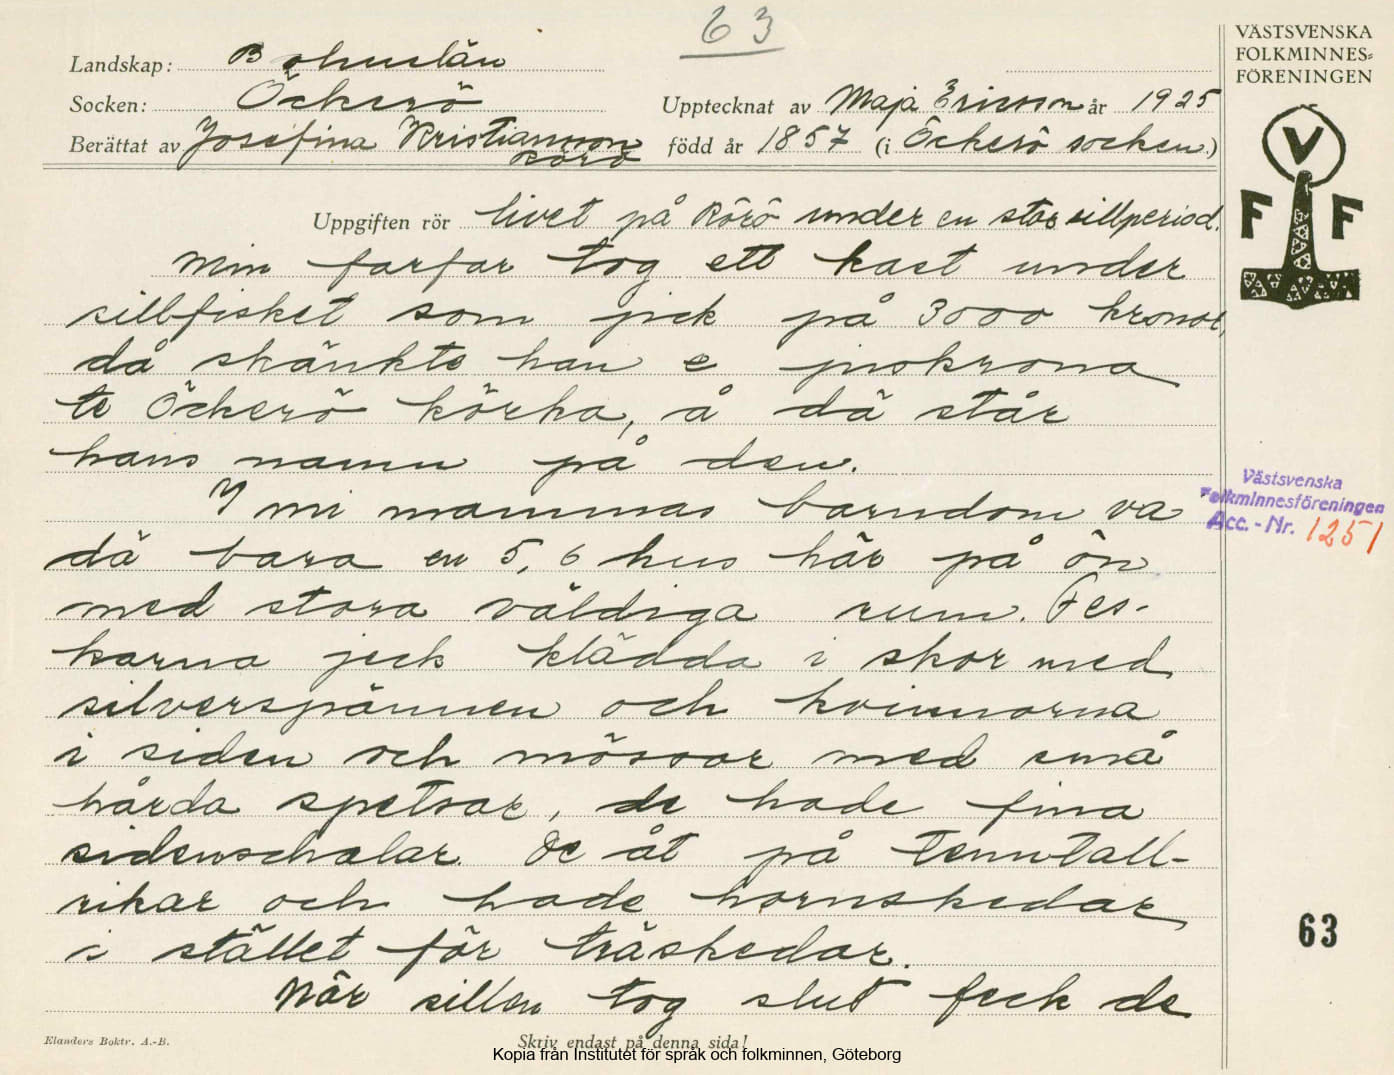 63
VÄSTSVENSKA
FOLKMINNES=
FÖRENINGEN
Landskap: Bohuslän
Socken: Öckerö
Upptecknat av Maja Ericson år 1925
Berättat av Josefina Kristiansson
Rörö
född år 1857 (i Öckerö socken.)
V
F F
Uppgiften rör livet på Rörö under en stor sillperiod.
Min farfar tog ett kast under
sillfisket som jick på 3000 kronor,
då skänkte han e juskrona
te Öckerö körka, å dä står
hans namn på den.
I mi mammas barndom va
dä bara en 5, 6 hus här på ön
med stora väldiga rum. Fes-
karna jeck klädda i skor med
silverspännen och kvinnorna
i siden och mössor med små
hårda spetsar, de hade fina
sidenschalar. De åt på tenntall-
rikar och hade hornskedar
i stället för träskedar.
När sillen tog slut feck de
Västsvenska
Folkminnesföreningen
Acc. - Nr. 1251
63
Elanders Boktr. A.-B.
Skriv endast på denna sida!
Kopia från Institutet för språk och folkminnen, Göteborg